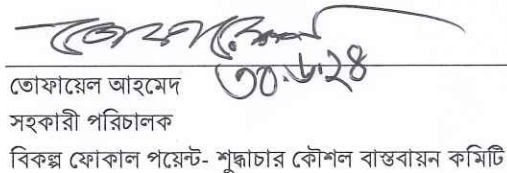 তোফায়েল
৩০.৬.২৪
তোফায়েল আহমেদ
সহকারী পরিচালক
বিকল্প ফোকাল পয়েন্ট- শুদ্ধাচার কৌশল বাস্তবায়ন কমিটি